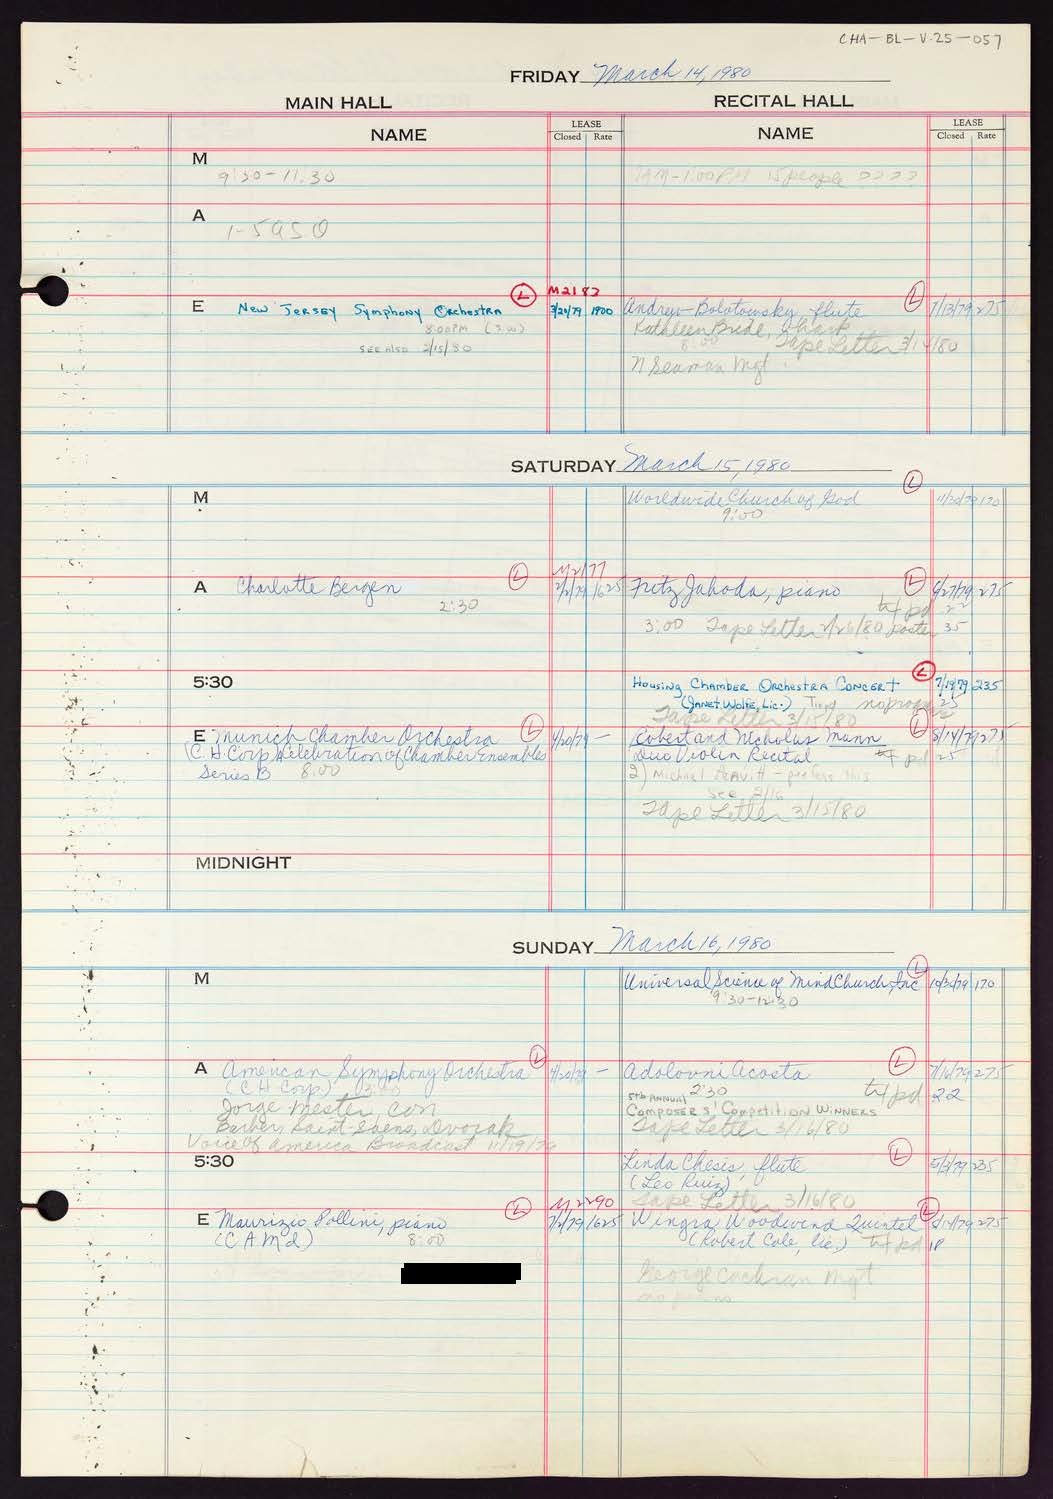 CHA-BL-V.25-057
FRIDAY March 14, 1980
MAIN HALL RECITAL HALL
NAME LEASE Closed Rate NAME LEASE Closed Rate
M
9:30-11.30 9AM-1:00PM 15 people ????
A
1-5 ASO
M2182
E New Jersey Symphony Orchestra L 3/20/79 1900 Andrew Bolotowsky flute L 7/13/79 275
8:00PM Kathleen Bride,
8:00 Tape Letter 3/14/80
See Also 2/15/80
N Seaman Mgt
SATURDAY March 15, 1980
M Worldwide Church of God L 11/20/79 170
9:00
M2177
A Charlotte Bergen L 2/2/79 1625 Fritz Jahoda, piano L 9/27/79 275
2:30 txt pd 22
3:00 Tape Letter 2/26/80 poster 35
5:30 Housing Chamber Orchestra Concert L 7/19/79 235
(Janet Wolfe, Lic.) no programs 25
Tape Letter 3/15/80
E Munich Chamber Orchestra L 4/20/79 - Robert and Nicholas Mann L 8/14/79 275
(C H Corp Celebration of Chamber Ensembles Duo Violin Recital txt pd 25
Series B 8:00 2) Michael Leavitt - prefers this
See 2/16
Tape Letter 3/15/80
MIDNIGHT
SUNDAY March 16, 1980
M Universal Science of Mind Church, Inc L 10/30/79 170
9:30-12:30
A American Symphony Orchestra L 4/20/79 - Adolovni Acosta L 7/16/79 275
(C H Corp) 3:00 2:30 txt pd 22
Jorge Mester, con 5th Annual
Composers' Competition Winners
Barber, Saint-Saens, Dvorak Tape Letter 3/16/80
Voice of America Broadcast 11/19/79
5:30 Linda Chesis, flute L 5/3/79 235
(Leo Ruiz)
M2290 Tape Letter 3/16/80
E Maurizio Pollini, piano L 7/2/79 1625 Wingra Woodwind Quintet L 8/14/79 275
(C A M I) 8:00 (Robert Cole, lic.) txt pd 18
George Cochran Mgt
no piano